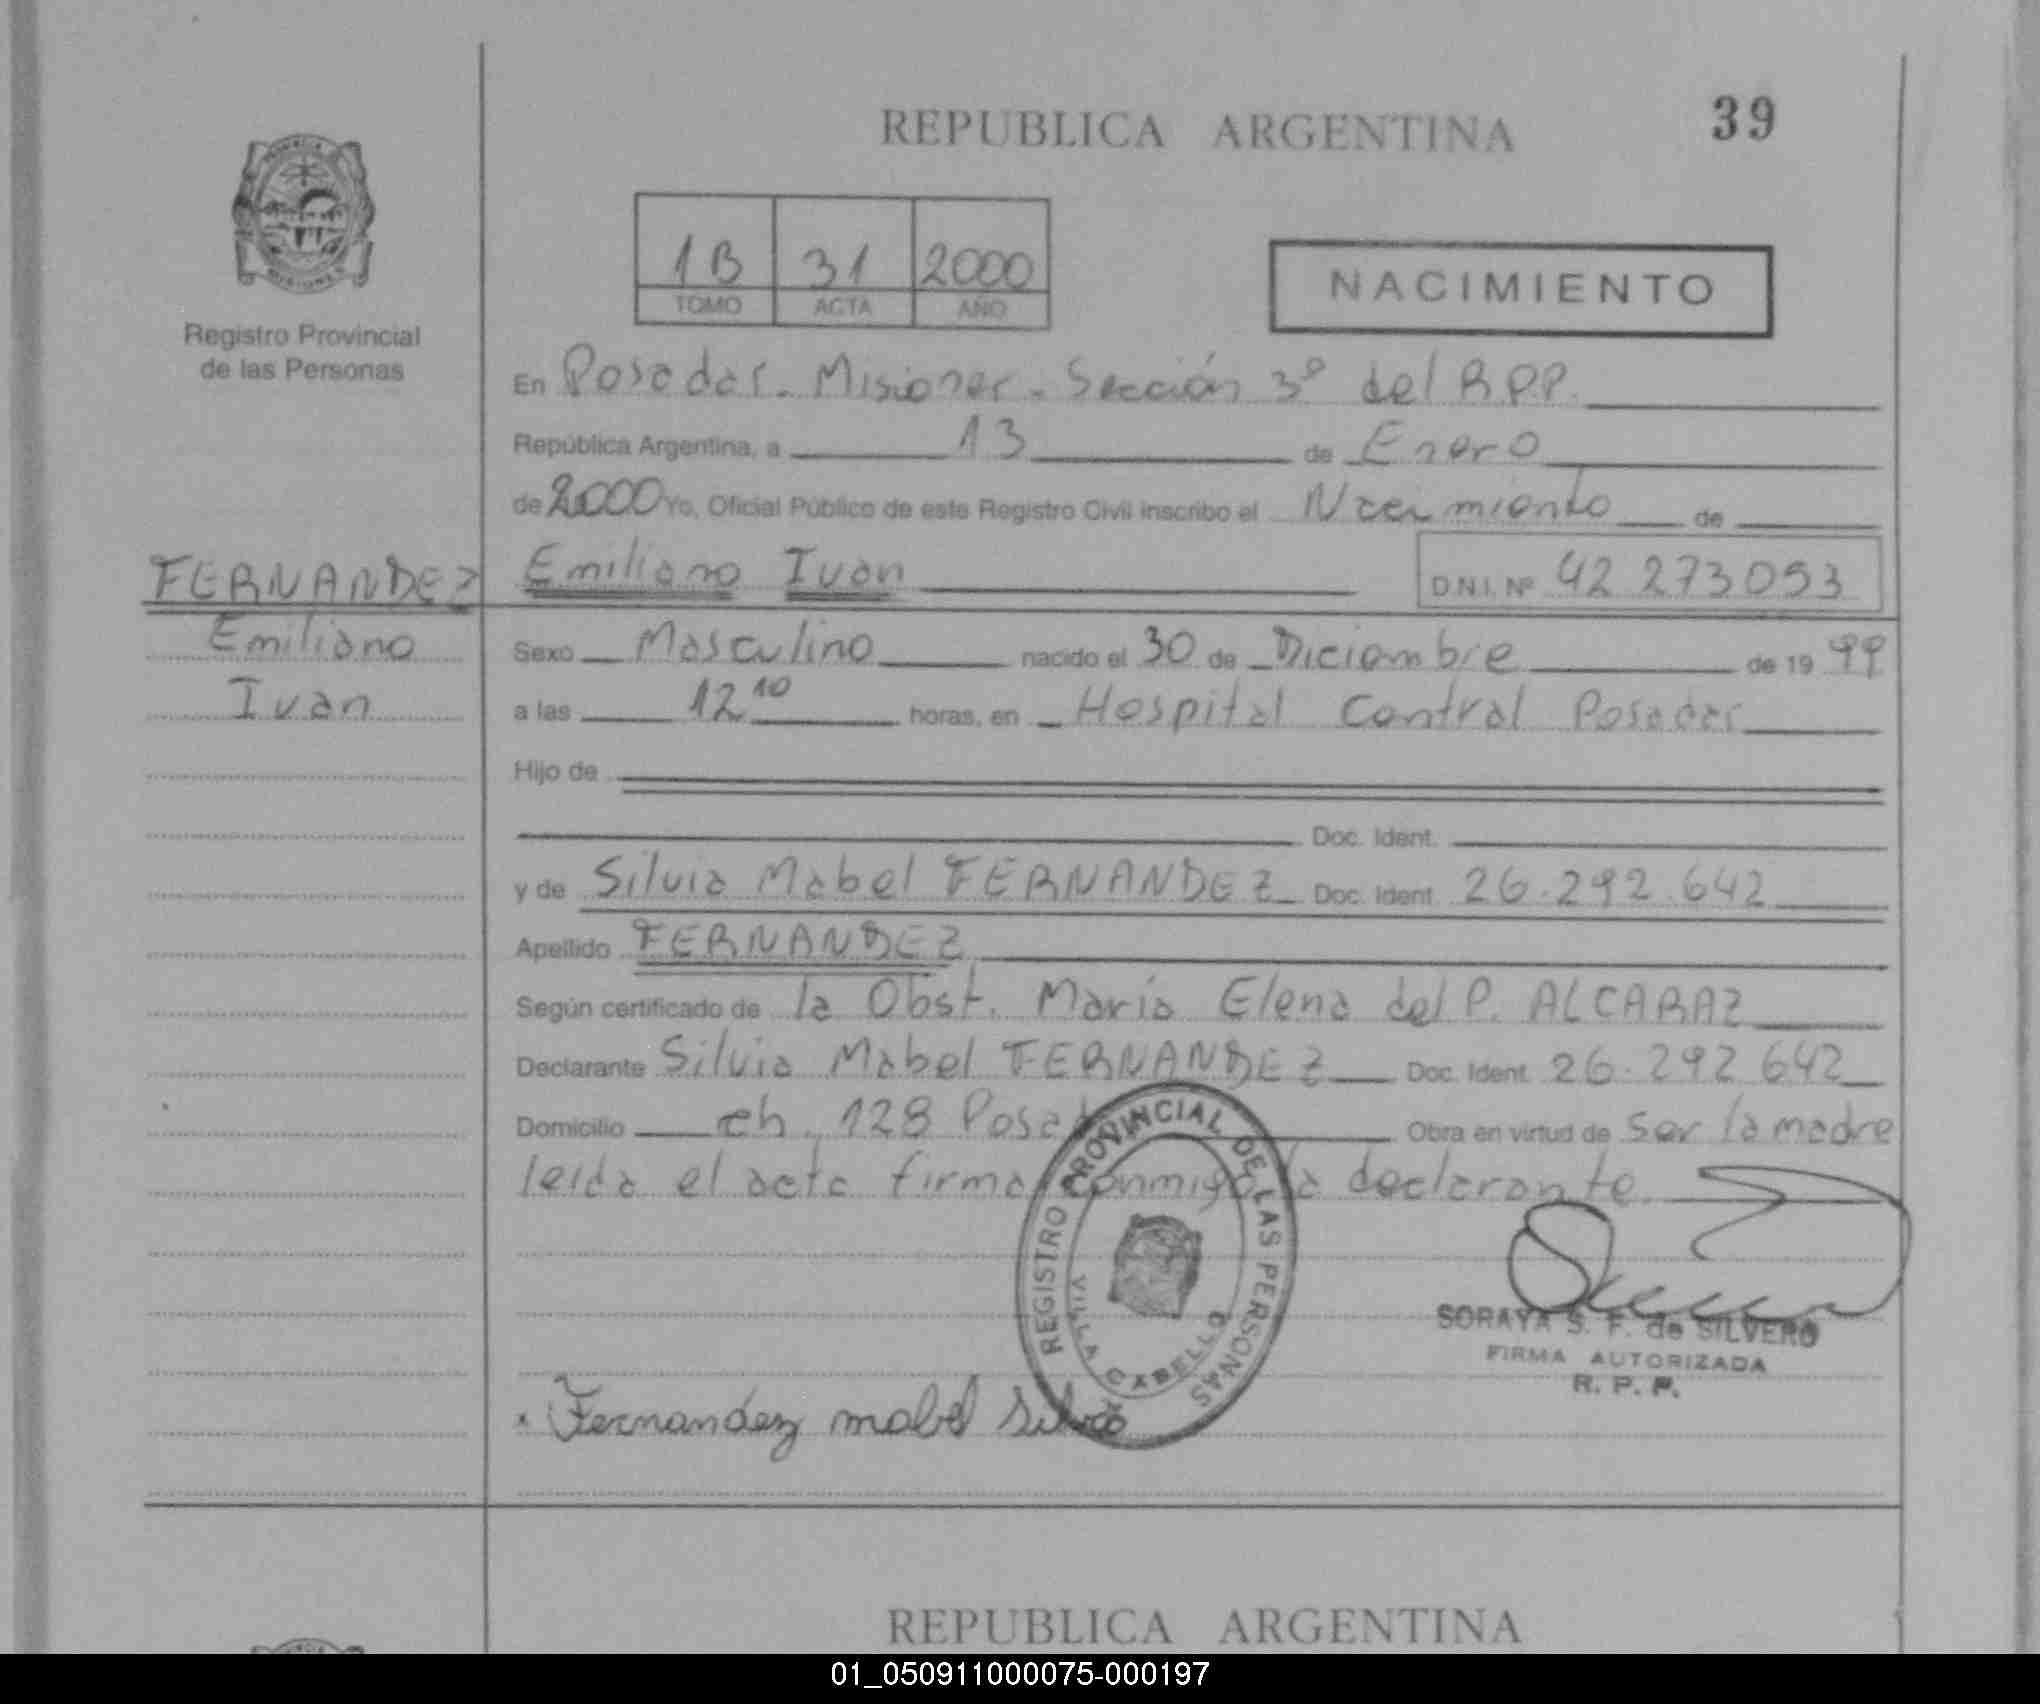 REPUBLICA ARGENTINA
39
PROVINCIA
MISIONES
Registro Provincial
de las Personas
1B 31 2000
TOMO ACTA AÑO
NACIMIENTO
En Posadas - Misiones - Sección 3º del R.P.P.
República Argentina, a 13 de Enero
de 2000 Yo, Oficial Público de este Registro Civil inscribo el Nacimiento de
FERNANDEZ Emiliano Ivan D.N.I. Nº 42 273 053
Emiliano Sexo Masculino nacido el 30 de Diciembre de 19 99
Ivan a las 12 10 horas, en Hospital Central Posadas
Hijo de
Doc. Ident.
y de Silvia Mabel FERNANDEZ Doc. Ident. 26.292.642
Apellido FERNANDEZ
Según certificado de la Obst. María Elena del P. ALCARAZ
Declarante Silvia Mabel FERNANDEZ Doc. Ident. 26.292 642
Domicilio ch. 128 Obra en virtud de ser la madre
leida el acta firma conmigo la declarante.
REGISTRO PROVINCIAL DE LAS PERSONAS
VILLA CABELLO
SORAYA S. F. de SILVERO
FIRMA AUTORIZADA
R. P. P.
Fernandez mabel Silvia
REPUBLICA ARGENTINA
01_050911000075-000197